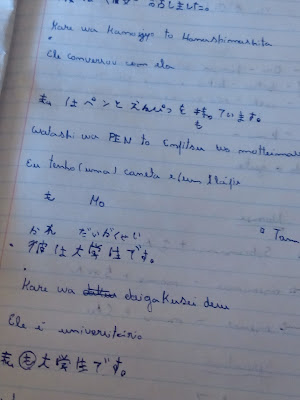 しました。
Kare wa Kanojyo to Hanashimashita
Ele conversou com ela
私はペンとえんぴつを持っています。
も
Watashi wa PEN to Empitsu wo
Eu tenho (uma) caneta e (um lápis
Mo
かれ だいがくせい
彼は大学生です。
Kare wa daigakusei desu
Ele é universitário
私も大学生です。